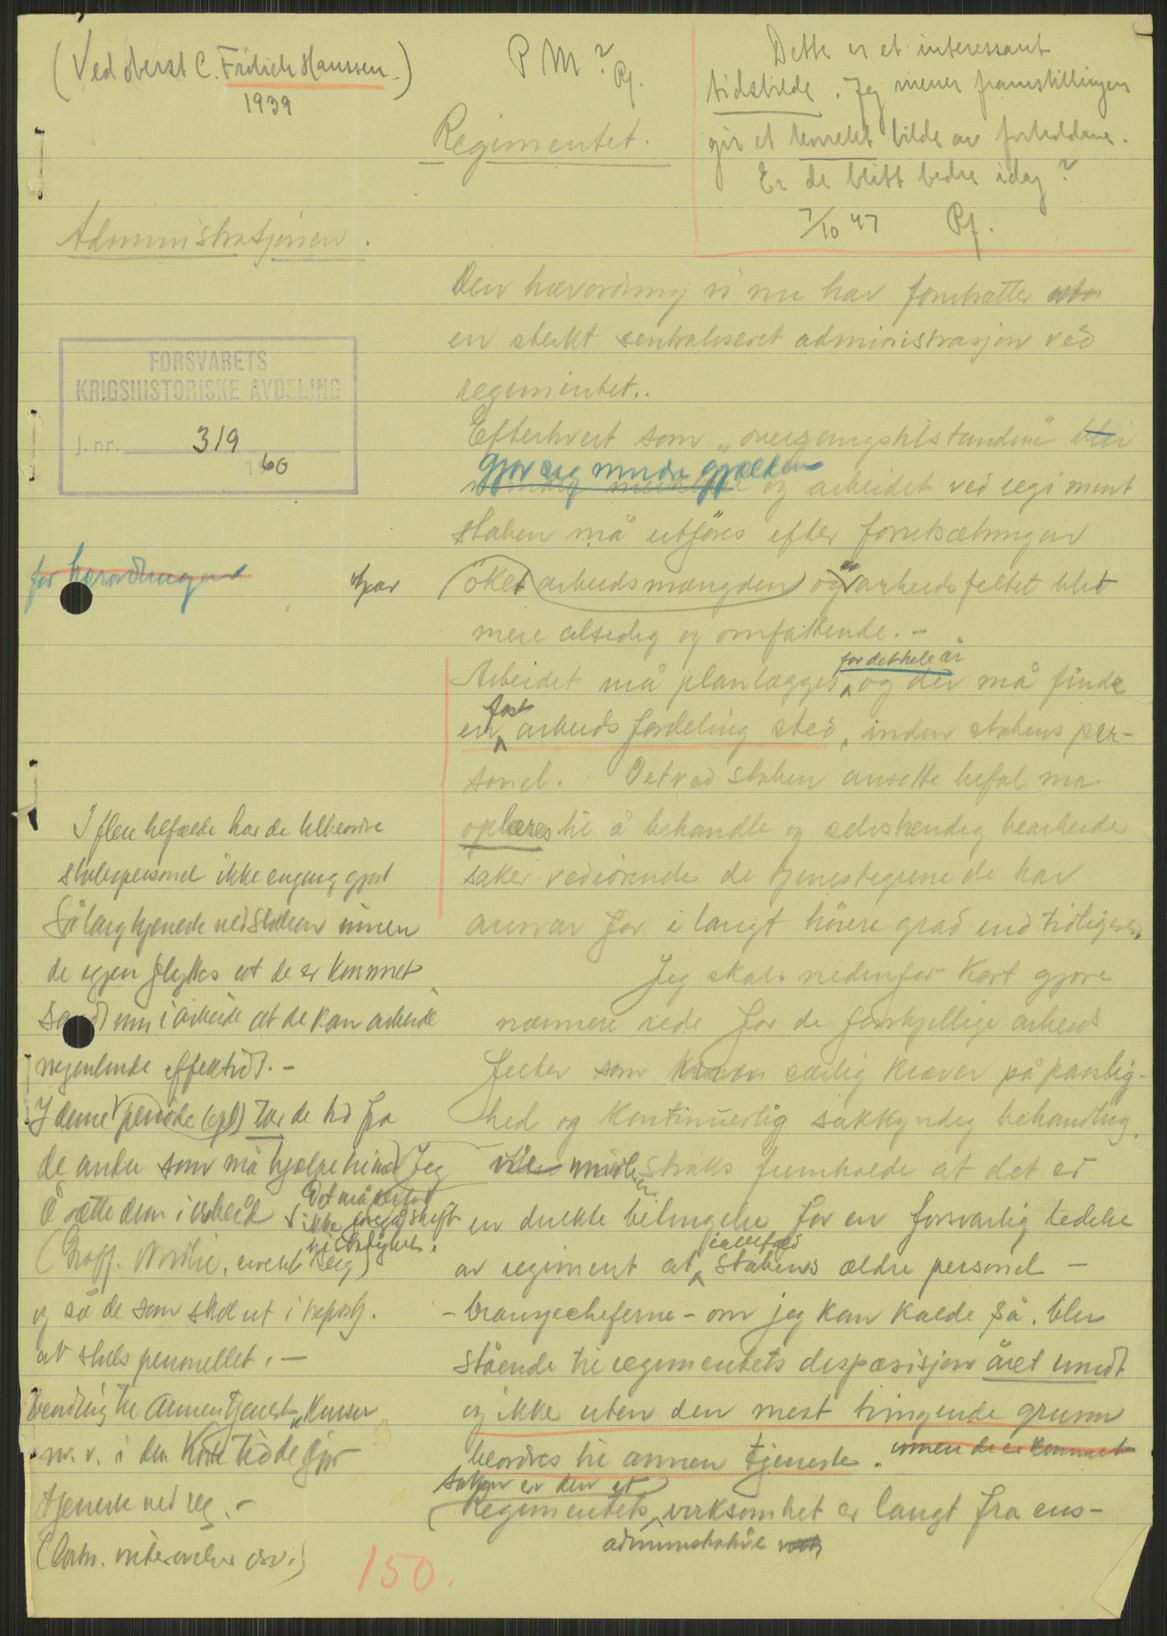 (Ved oberst C. Frölich Hanssen.)
1939
P M ?
Rf.
Dette er et interessant
tidsbilde. Jeg mener framstillingen
gir et korrekt bilde av forholdene.
Er de blitt bedre idag?
7/10 47 Rf.
Regimentet.
Administrasjonen.
Den hærordning vi nu har forutsætter
en sterkt sentraliseret administrasjon ved
regimentet..
FORSVARETS
KRIGSHISTORISKE AVDELING
J. nr. 319
1960
Efterhvert som „overgangstilstandene" blir
gjør sig mindre gjældende
og arbeidet ved regiment
staben må utføres efter forutsætningen
for hærordningen
har
øket arbeidsmængden og arbeidsfeltet blit
mere alsidig og omfattende. –
for det hele år
Arbeidet må planlægges og der må finde
fast
en arbeidsfordeling sted, inden stabens per-
sonel. Det ved staben ansatte befal må
oplæres til å behandle og selvstændig bearbeide
saker vedrørende de tjenestegrene de har
ansvar for i langt høiere grad end tidligere.
Jeg skal nedenfor kort gjøre
nærmere rede for de forskjellige arbeids
felter som kræver særlig krav på passelig-
hed og kontinuerlig sakkyndig behandling.
vil straks fremholde at det er
en direkte betingelse for en forsvarlig ledelse
ialfald
av regiment at stabens ældre personel –
– bransjecheferne – om jeg kan kalde så, blir
stående til regimentets disposisjon året rundt
og ikke uten den mest tvingende grunn
beordres til annen tjeneste. innen de er kommet
saken er den at
Regimentets virksomhet er langt fra ens-
administrative
I flere tilfælde har de tilbeordre
stabspersonel ikke engang gjort
så lang tjeneste ved staben innen
de igjen flyttes at de er kommet
sandt inn i arbeide at de kan arbeide
nogenlunde effektivt. –
I denne periode (opl) tar de tid fra
de andre som må hjælpe til med
å sætte dem i arbeid
Det må derfor
ikke foregå skift
og så de som skal ut i
av stabspersonellet. –
til annen tjeneste, kurser
m. v. i den korte tid de gjør
tjeneste ved reg. –
150.